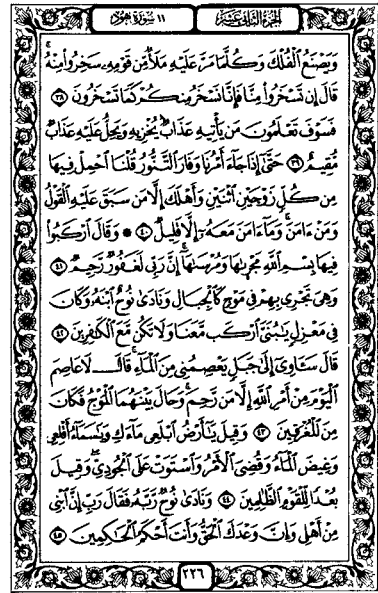 الجزء الثاني عشر
١١ سورة هود
وَيَصْنَعُ ٱلْفُلْكَ وَكُلَّمَا مَرَّ عَلَيْهِ مَلَأٌ مِّن قَوْمِهِۦ سَخِرُوا۟ مِنْهُ
قَالَ إِن تَسْخَرُوا۟ مِنَّا فَإِنَّا نَسْخَرُ مِنكُمْ كَمَا تَسْخَرُونَ ٣٨
فَسَوْفَ تَعْلَمُونَ مَن يَأْتِيهِ عَذَابٌ يُخْزِيهِ وَيَحِلُّ عَلَيْهِ عَذَابٌ
مُّقِيمٌ ٣٩ حَتَّىٰٓ إِذَا جَآءَ أَمْرُنَا وَفَارَ ٱلتَّنُّورُ قُلْنَا ٱحْمِلْ فِيهَا
مِن كُلٍّ زَوْجَيْنِ ٱثْنَيْنِ وَأَهْلَكَ إِلَّا مَن سَبَقَ عَلَيْهِ ٱلْقَوْلُ
وَمَنْ ءَامَنَ وَمَآ ءَامَنَ مَعَهُۥٓ إِلَّا قَلِيلٌ ٤٠ ۞ وَقَالَ ٱرْكَبُوا۟
فِيهَا بِسْمِ ٱللَّهِ مَجْر۪ىٰهَا وَمُرْسَىٰهَآ إِنَّ رَبِّى لَغَفُورٌ رَّحِيمٌ ٤١
وَهِىَ تَجْرِى بِهِمْ فِى مَوْجٍ كَٱلْجِبَالِ وَنَادَىٰ نُوحٌ ٱبْنَهُۥ وَكَانَ
فِى مَعْزِلٍ يَٰبُنَىَّ ٱرْكَب مَّعَنَا وَلَا تَكُن مَّعَ ٱلْكَٰفِرِينَ ٤٢
قَالَ سَـَٔاوِىٓ إِلَىٰ جَبَلٍ يَعْصِمُنِى مِنَ ٱلْمَآءِ قَالَ لَا عَاصِمَ
ٱلْيَوْمَ مِنْ أَمْرِ ٱللَّهِ إِلَّا مَن رَّحِمَ وَحَالَ بَيْنَهُمَا ٱلْمَوْجُ فَكَانَ
مِنَ ٱلْمُغْرَقِينَ ٤٣ وَقِيلَ يَٰٓأَرْضُ ٱبْلَعِى مَآءَكِ وَيَٰسَمَآءُ أَقْلِعِى
وَغِيضَ ٱلْمَآءُ وَقُضِىَ ٱلْأَمْرُ وَٱسْتَوَتْ عَلَى ٱلْجُودِىِّ وَقِيلَ
بُعْدًا لِّلْقَوْمِ ٱلظَّٰلِمِينَ ٤٤ وَنَادَىٰ نُوحٌ رَّبَّهُۥ فَقَالَ رَبِّ إِنَّ ٱبْنِى
مِنْ أَهْلِى وَإِنَّ وَعْدَكَ ٱلْحَقُّ وَأَنتَ أَحْكَمُ ٱلْحَٰكِمِينَ ٤٥
٢٢٦